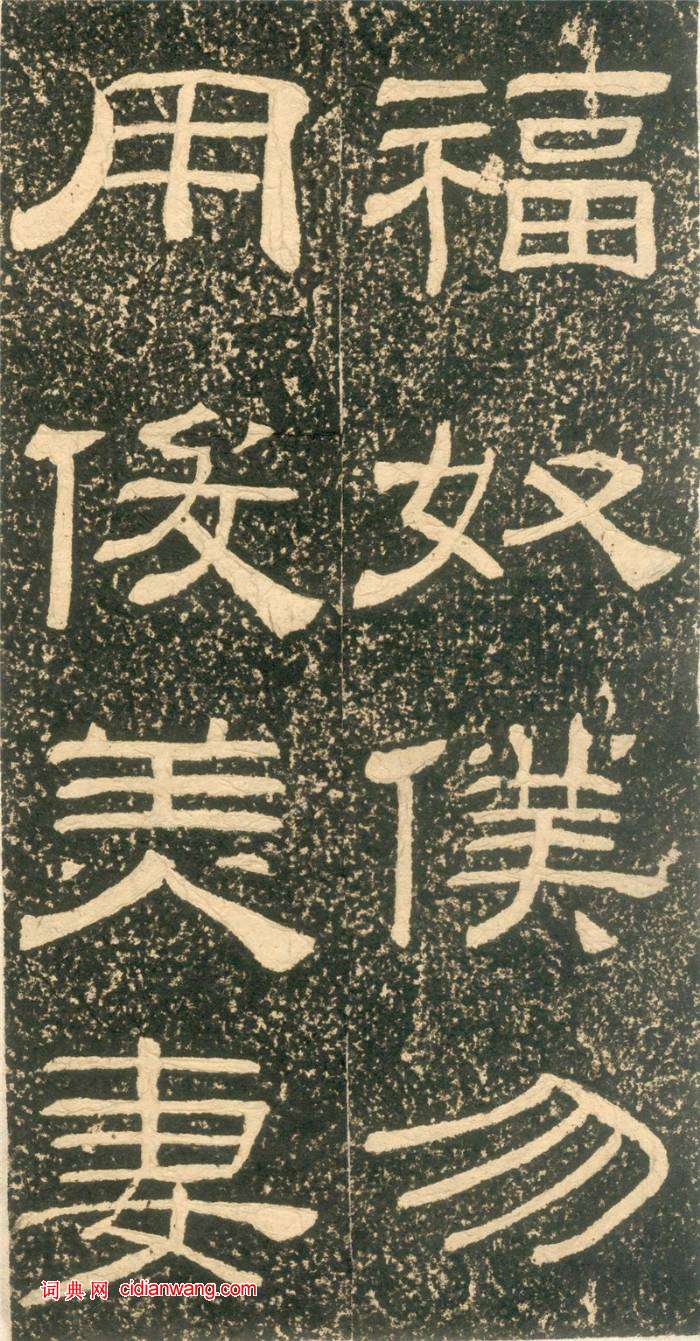 福奴僕勿
用俊美妻
词典网 cidianwang.com